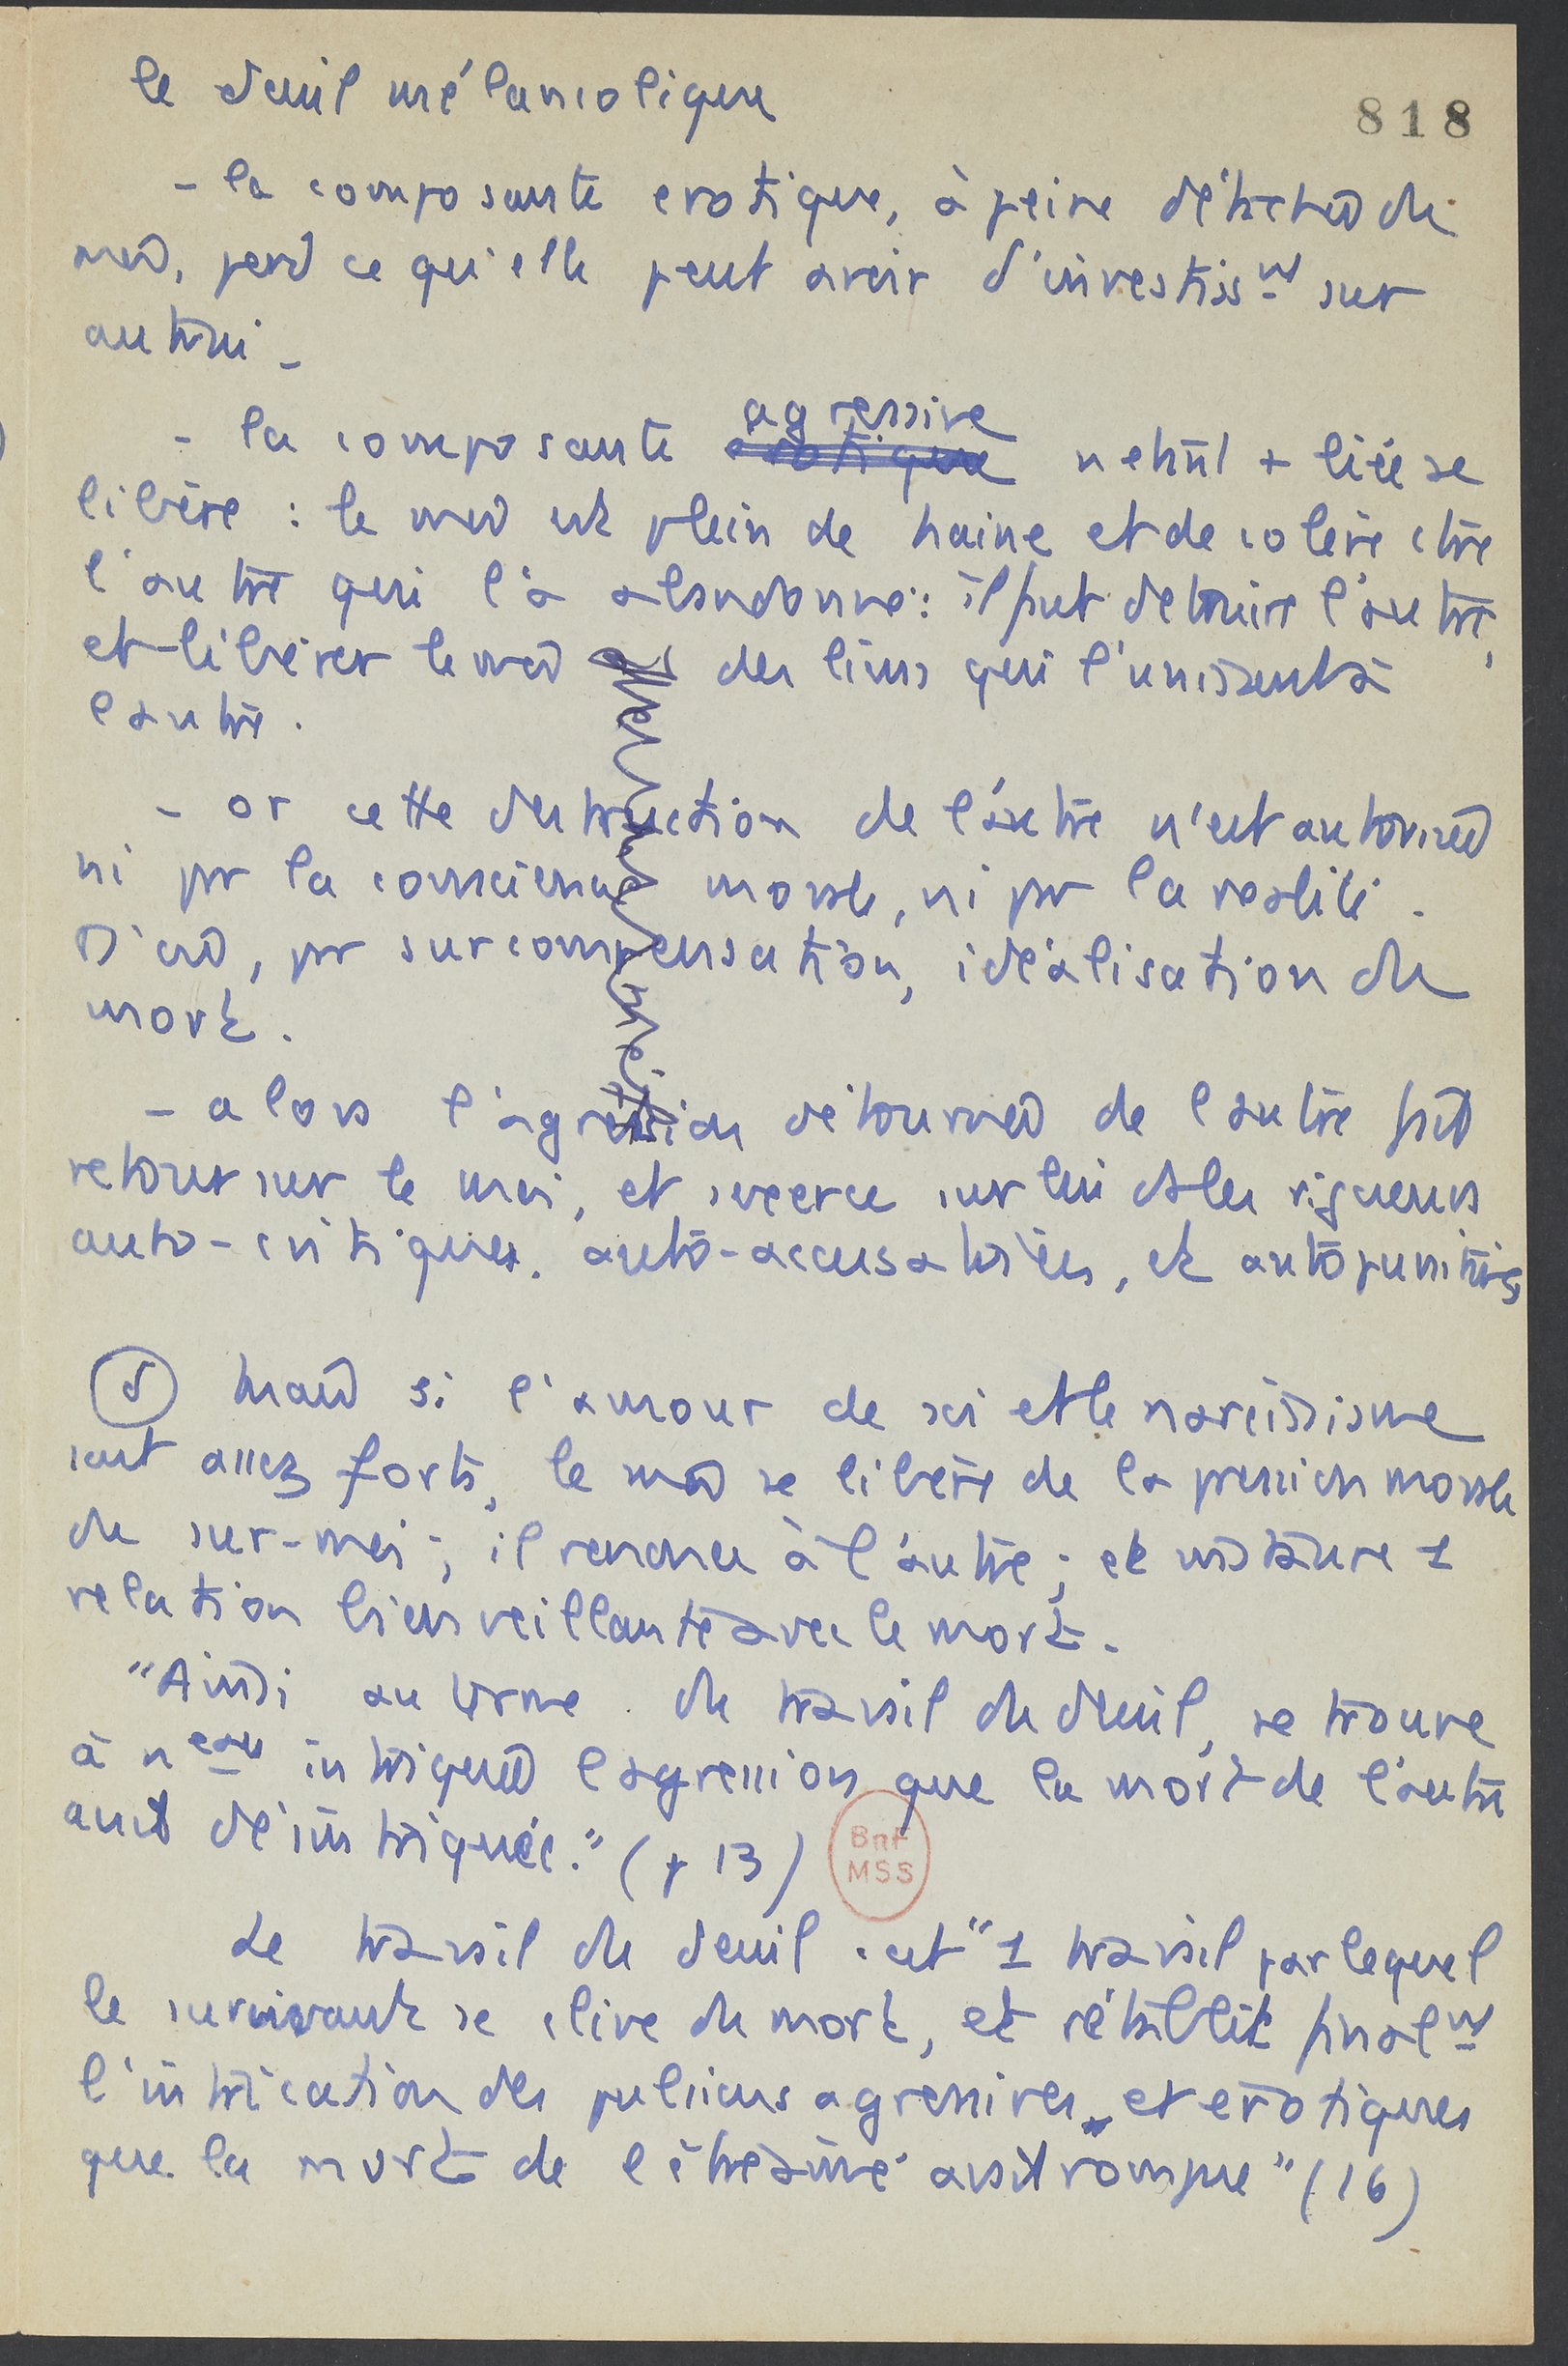 le deuil mélancolique
818
- la composante erotique, à peine détachée du
moi, perd ce qu'elle peut avoir d'investissmt sur
autrui -
- la composante erotique agressive n'etant + liée se
libère : le moi est plein de haine et de colère ctre
l'autre qui l'a abandonné : il faut detruire l'autre,
et libérer le moi des liens qui l'unissent à
l'autre.
- or cette destruction de l'autre n'est autorisée
ni par la conscience morale, ni par la réalité.
D'où, par surcompensation, idéalisation du
mort.
- alors l'agression détournée de l'autre fait
retour sur le moi, et exerce sur lui des rigueurs
auto-critiques, auto-accusatrices, et autopunitives
Mais si l'amour de soi et le narcissisme
sont assez forts, le moi se libère de la pression morale
du sur-moi ; il renonce à l'autre ; et instaure 1
relation bienveillante avec le mort.
"Ainsi au terme du travail du deuil, se trouve
à neau intriquée l'agression que la mort de l'autre
avait désintriquée." (p 13)
Le travail du deuil est "1 travail par lequel
le survivant se clive du mort, et rétablit finalmt
l'intrication des pulsions agressives et erotiques
que la mort de l'être aimé avait rompue" (16)
BnF
MSS